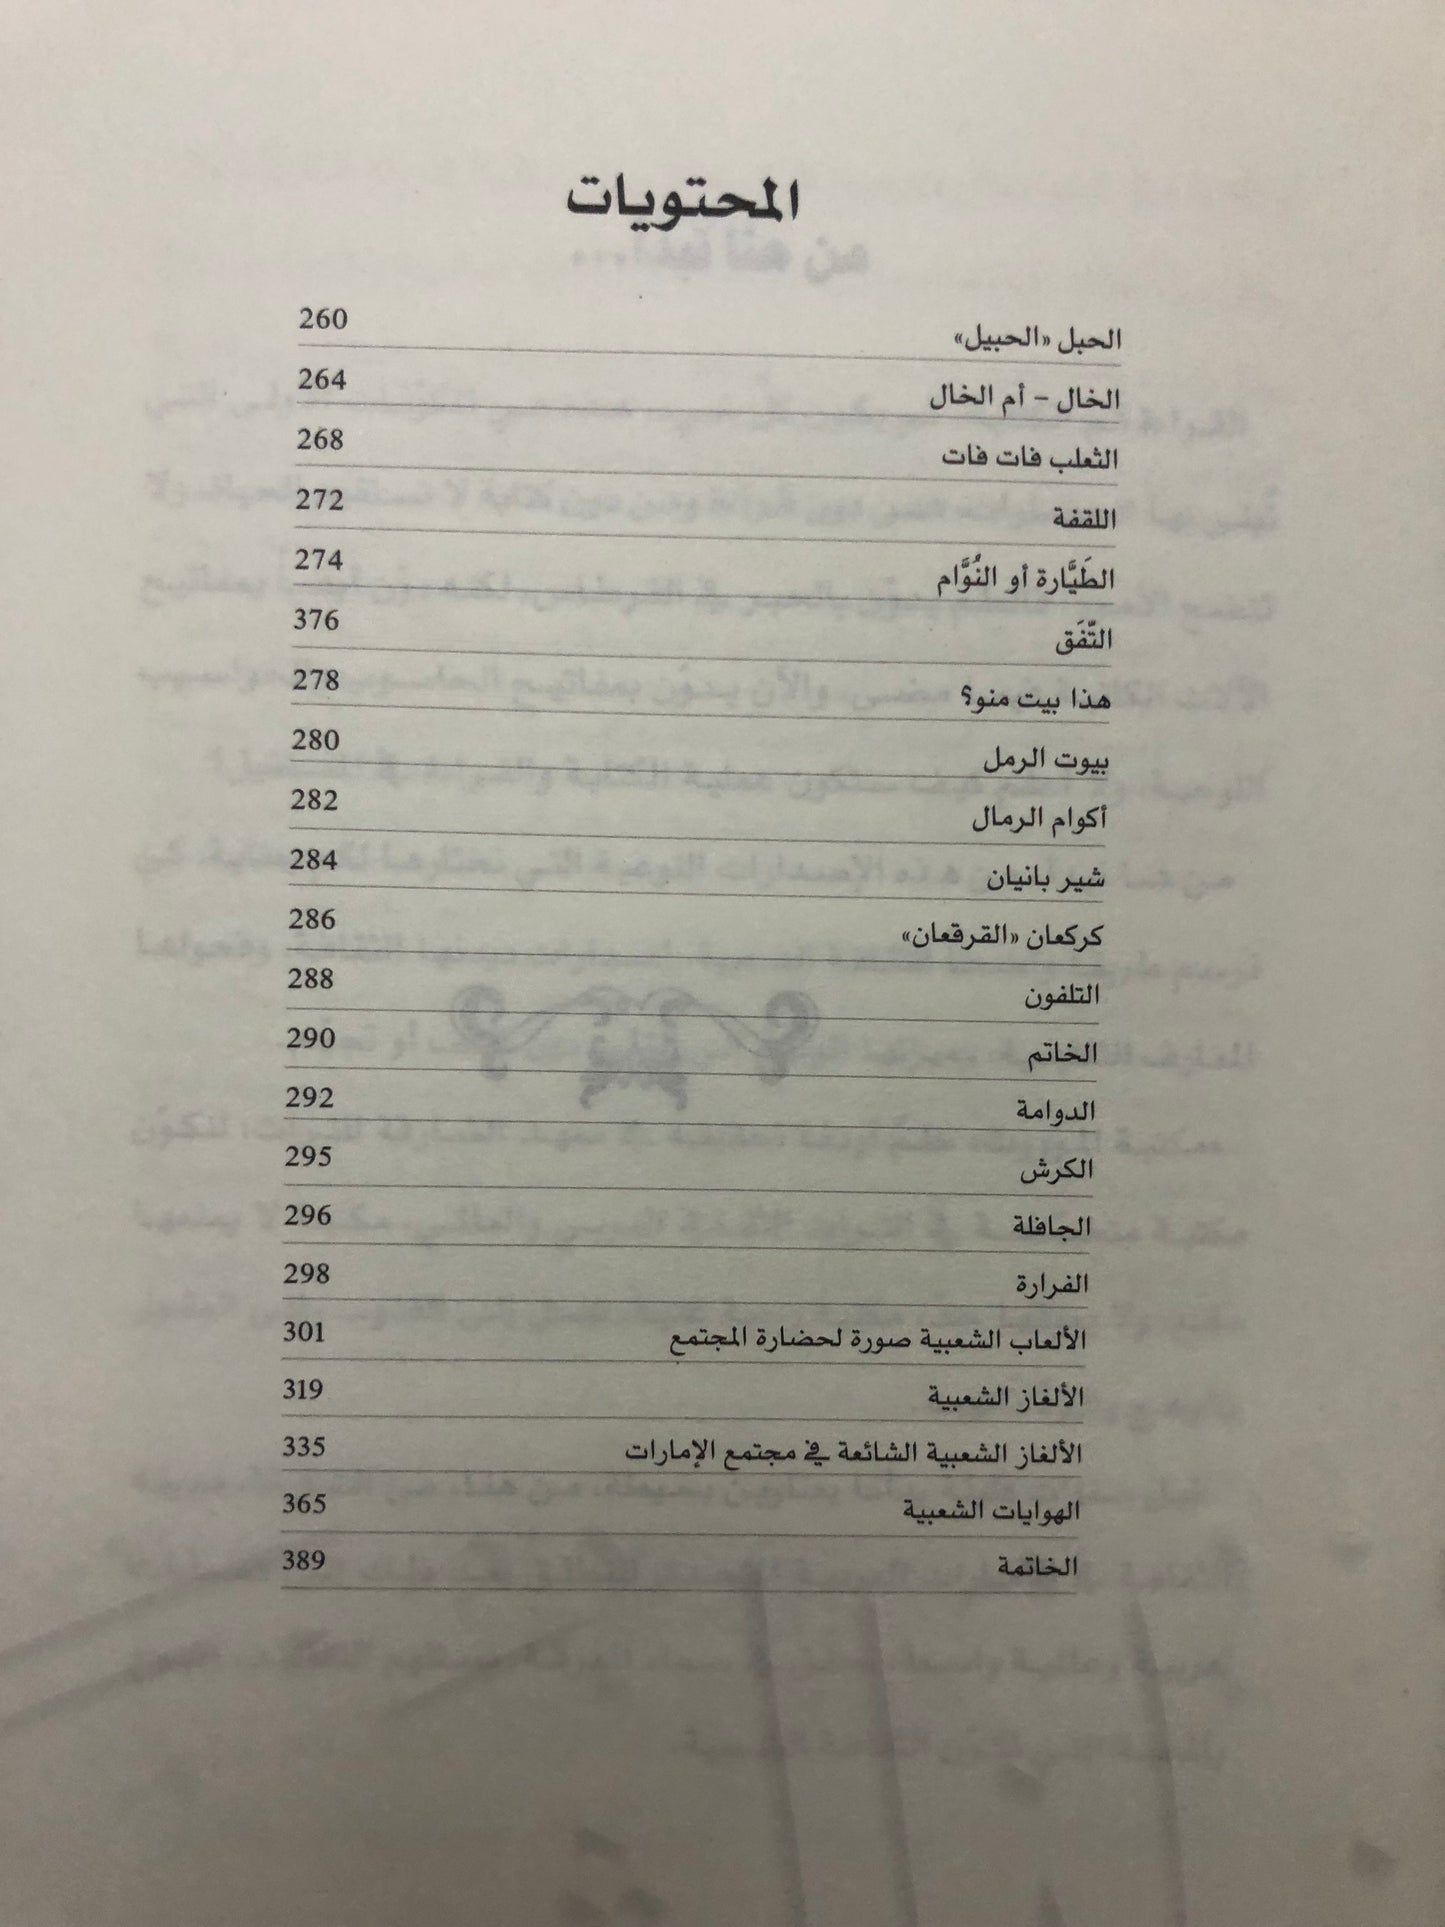 المحتويات
الحبل «الحبيل» 260
الخال – أم الخال 264
الثعلب فات فات 268
اللقفة 272
الطَيَّارة أو النُوَّام 274
التّفَق 376
هذا بيت منو؟ 278
بيوت الرمل 280
أكوام الرمال 282
شير بانيان 284
كركعان «القرقعان» 286
التلفون 288
الخاتم 290
الدوامة 292
الكرش 295
الجافلة 296
الفرارة 298
الألعاب الشعبية صورة لحضارة المجتمع 301
الألغاز الشعبية 319
الألغاز الشعبية الشائعة في مجتمع الإمارات 335
الهوايات الشعبية 365
الخاتمة 389